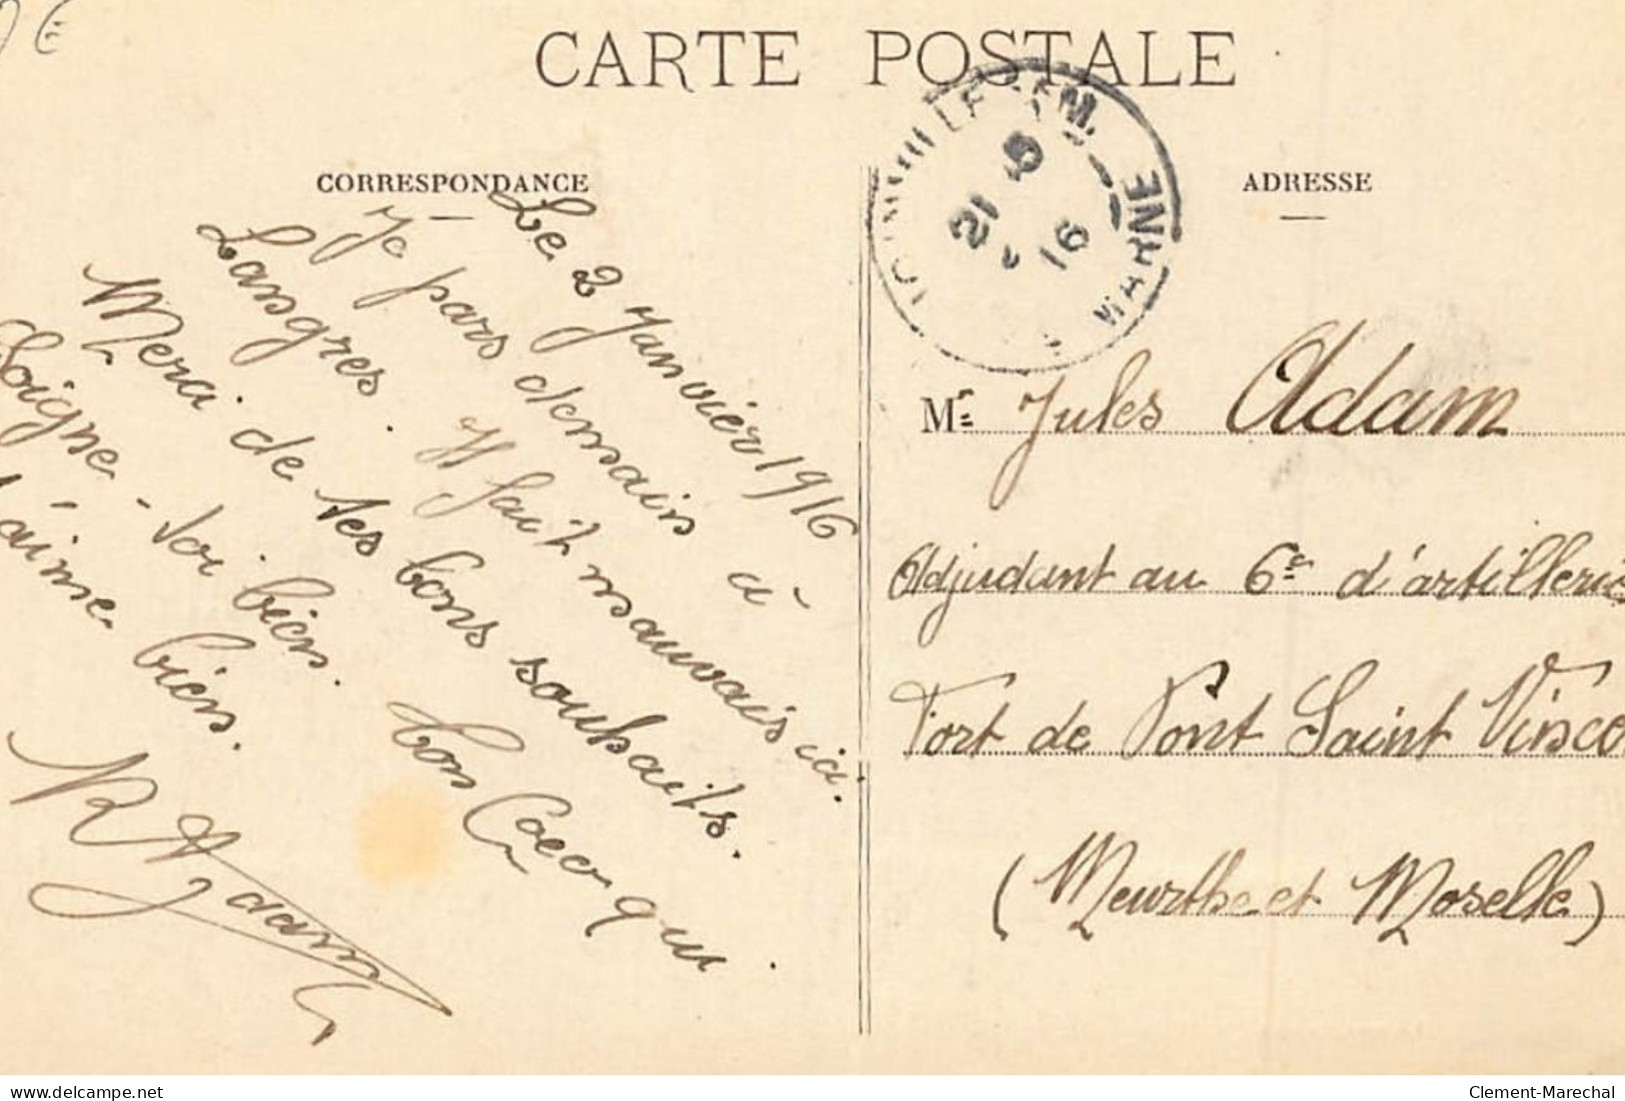 CARTE POSTALE
CORRESPONDANCE
ADRESSE
Le 2 Janvier 1916
Je pars demain à
Langres. Il fait mauvais ici.
Merci de tes bons souhaits.
Soigne-toi bien. Ton Coco qui
t'aime bien.
R Adam
21 5
16
MARNE
Mr Jules Adam
Adjudant au 6e d'artillerie
Fort de Pont Saint Vincen
(Meurthe et Moselle)
delcampe.net
Clement-Marechal